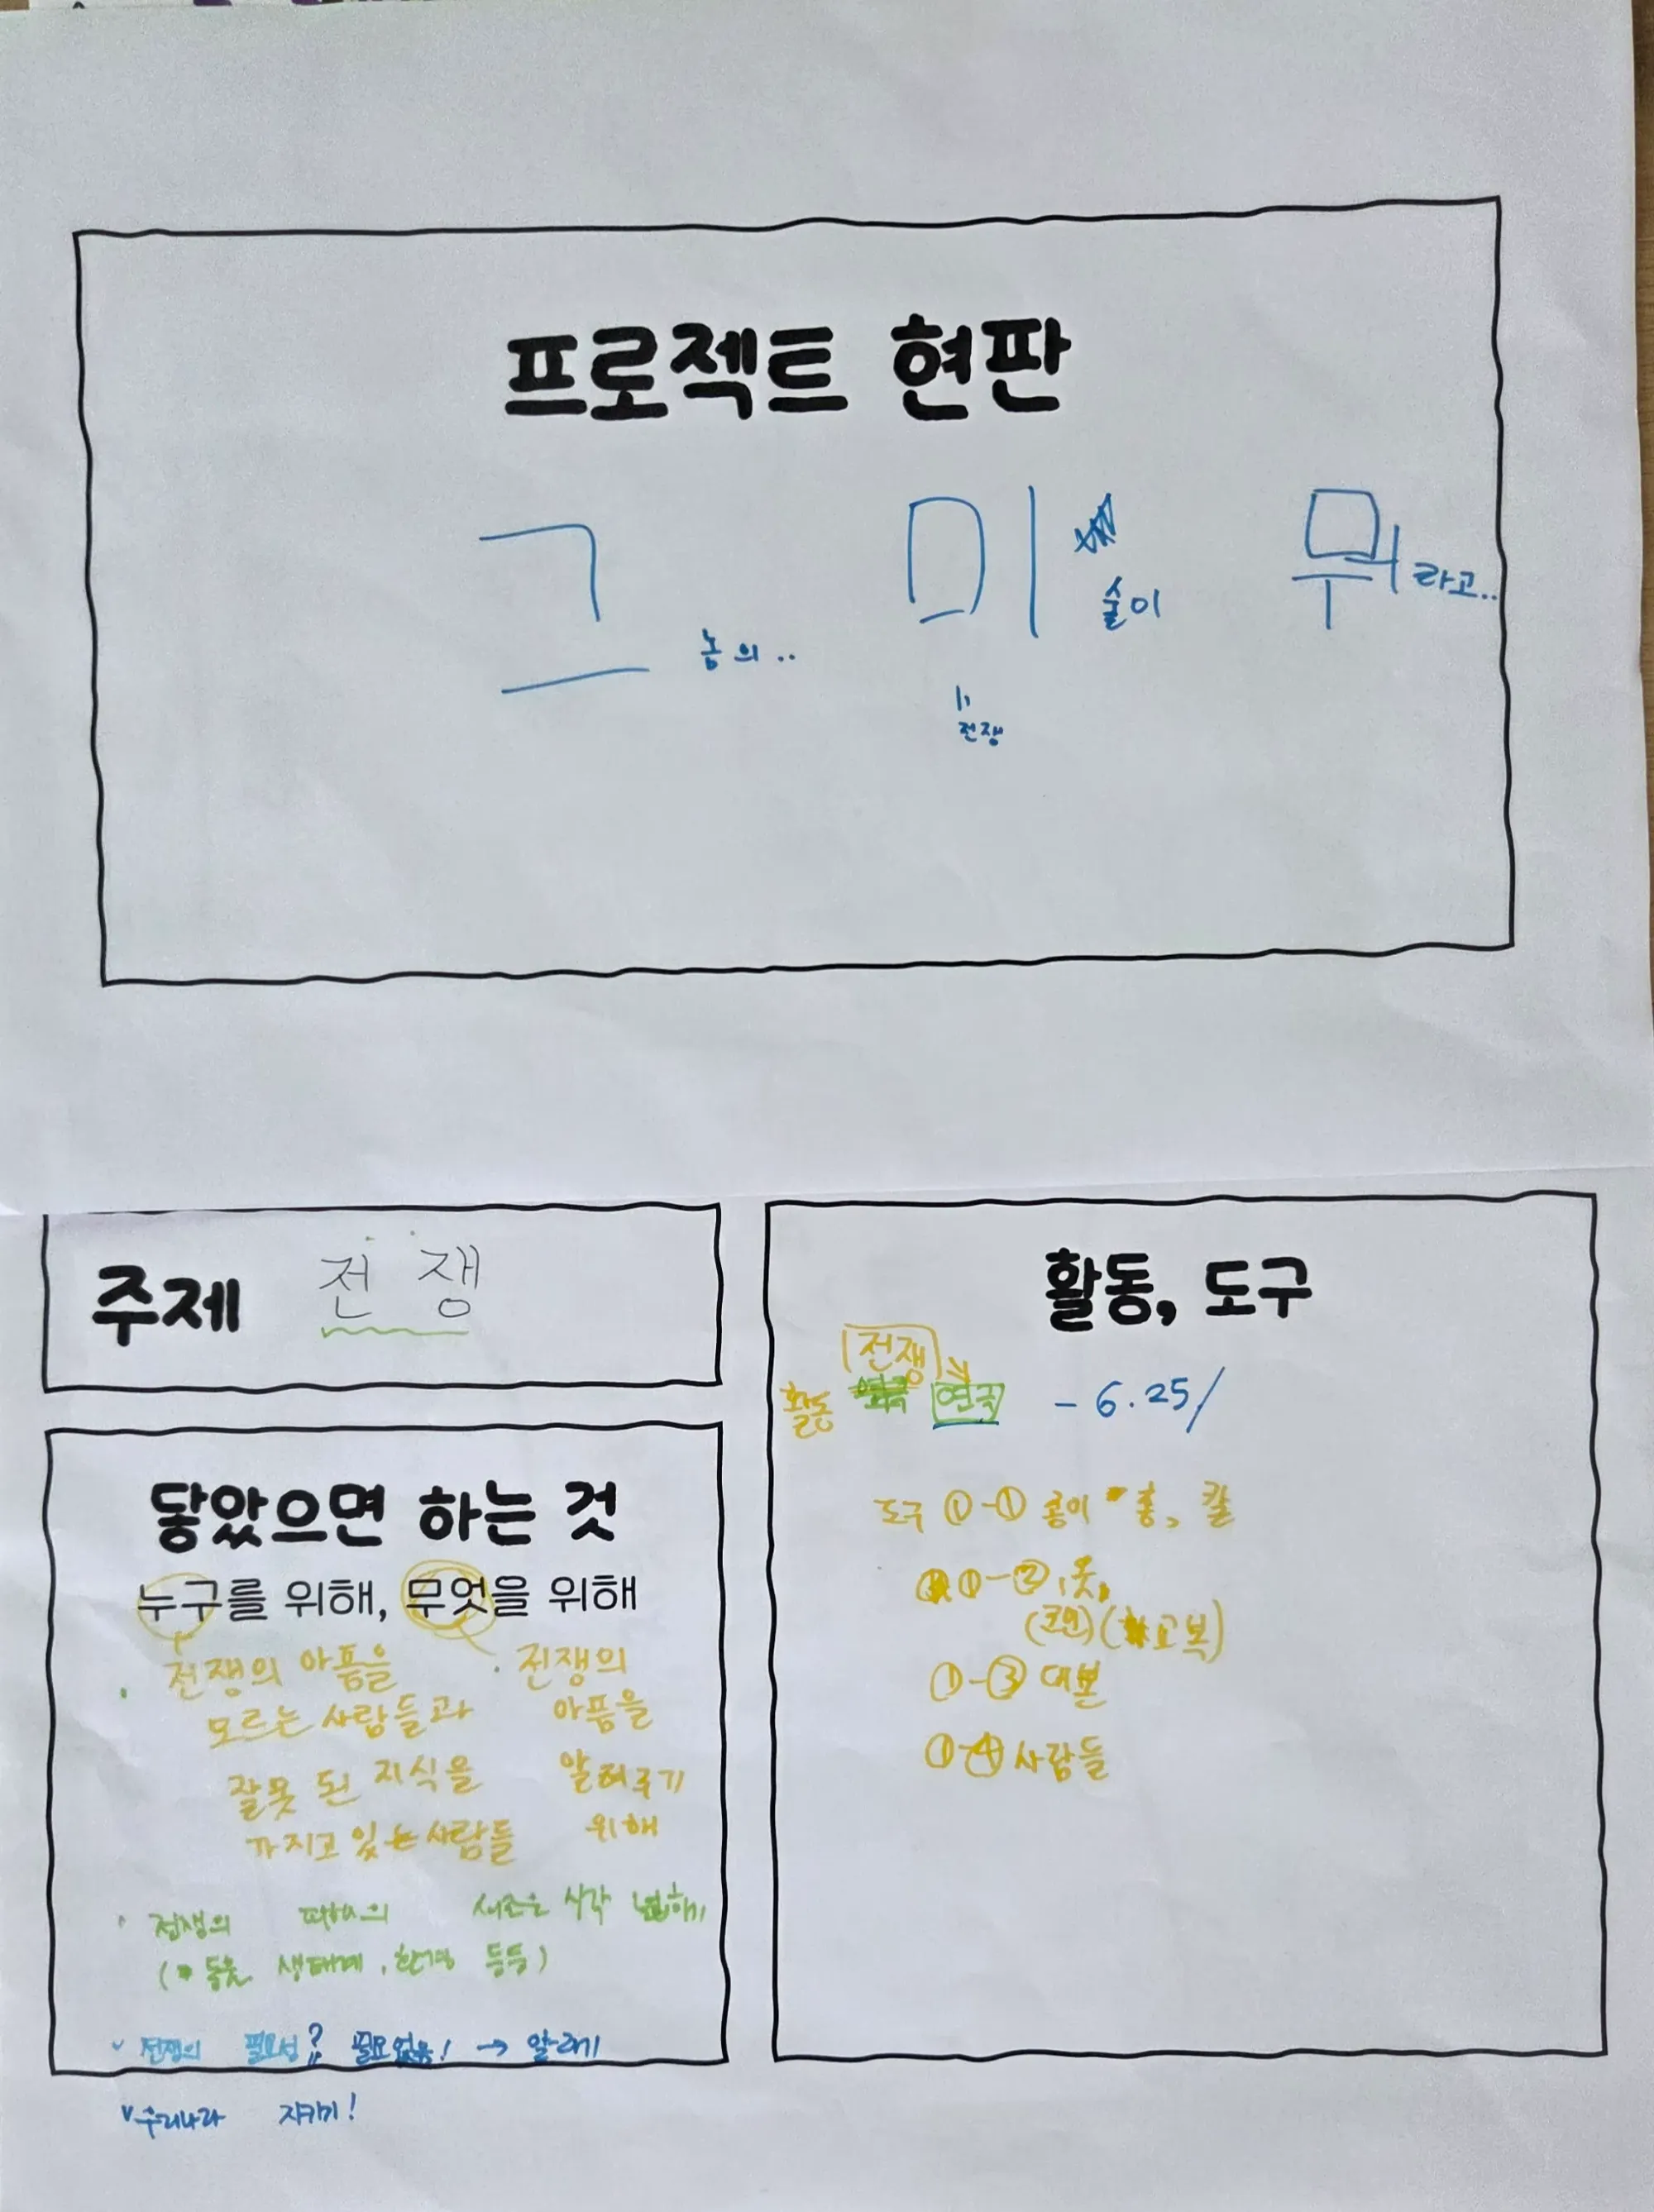 프로젝트 현판
그놈의.. 미술이 뭐라고..
전쟁
주제 전쟁
닿았으면 하는 것
누구를 위해, 무엇을 위해
전쟁의 아픔을
모르는 사람들과
잘못 된 지식을
가지고 있는 사람들
· 전쟁의
아픔을
알려주기
위해
· 전쟁의 피해의 새로운 시각 넓히기
( 동물, 생태계, 환경 등등)
v 전쟁의 필요성? 필요없음! → 알리기
v 우리나라 지키기!
활동, 도구
전쟁
활동 연극 - 6.25/
도구 ①-① 종이 총, 칼
①-② 옷,
(군인) (교복)
①-③ 대본
①-④ 사람들